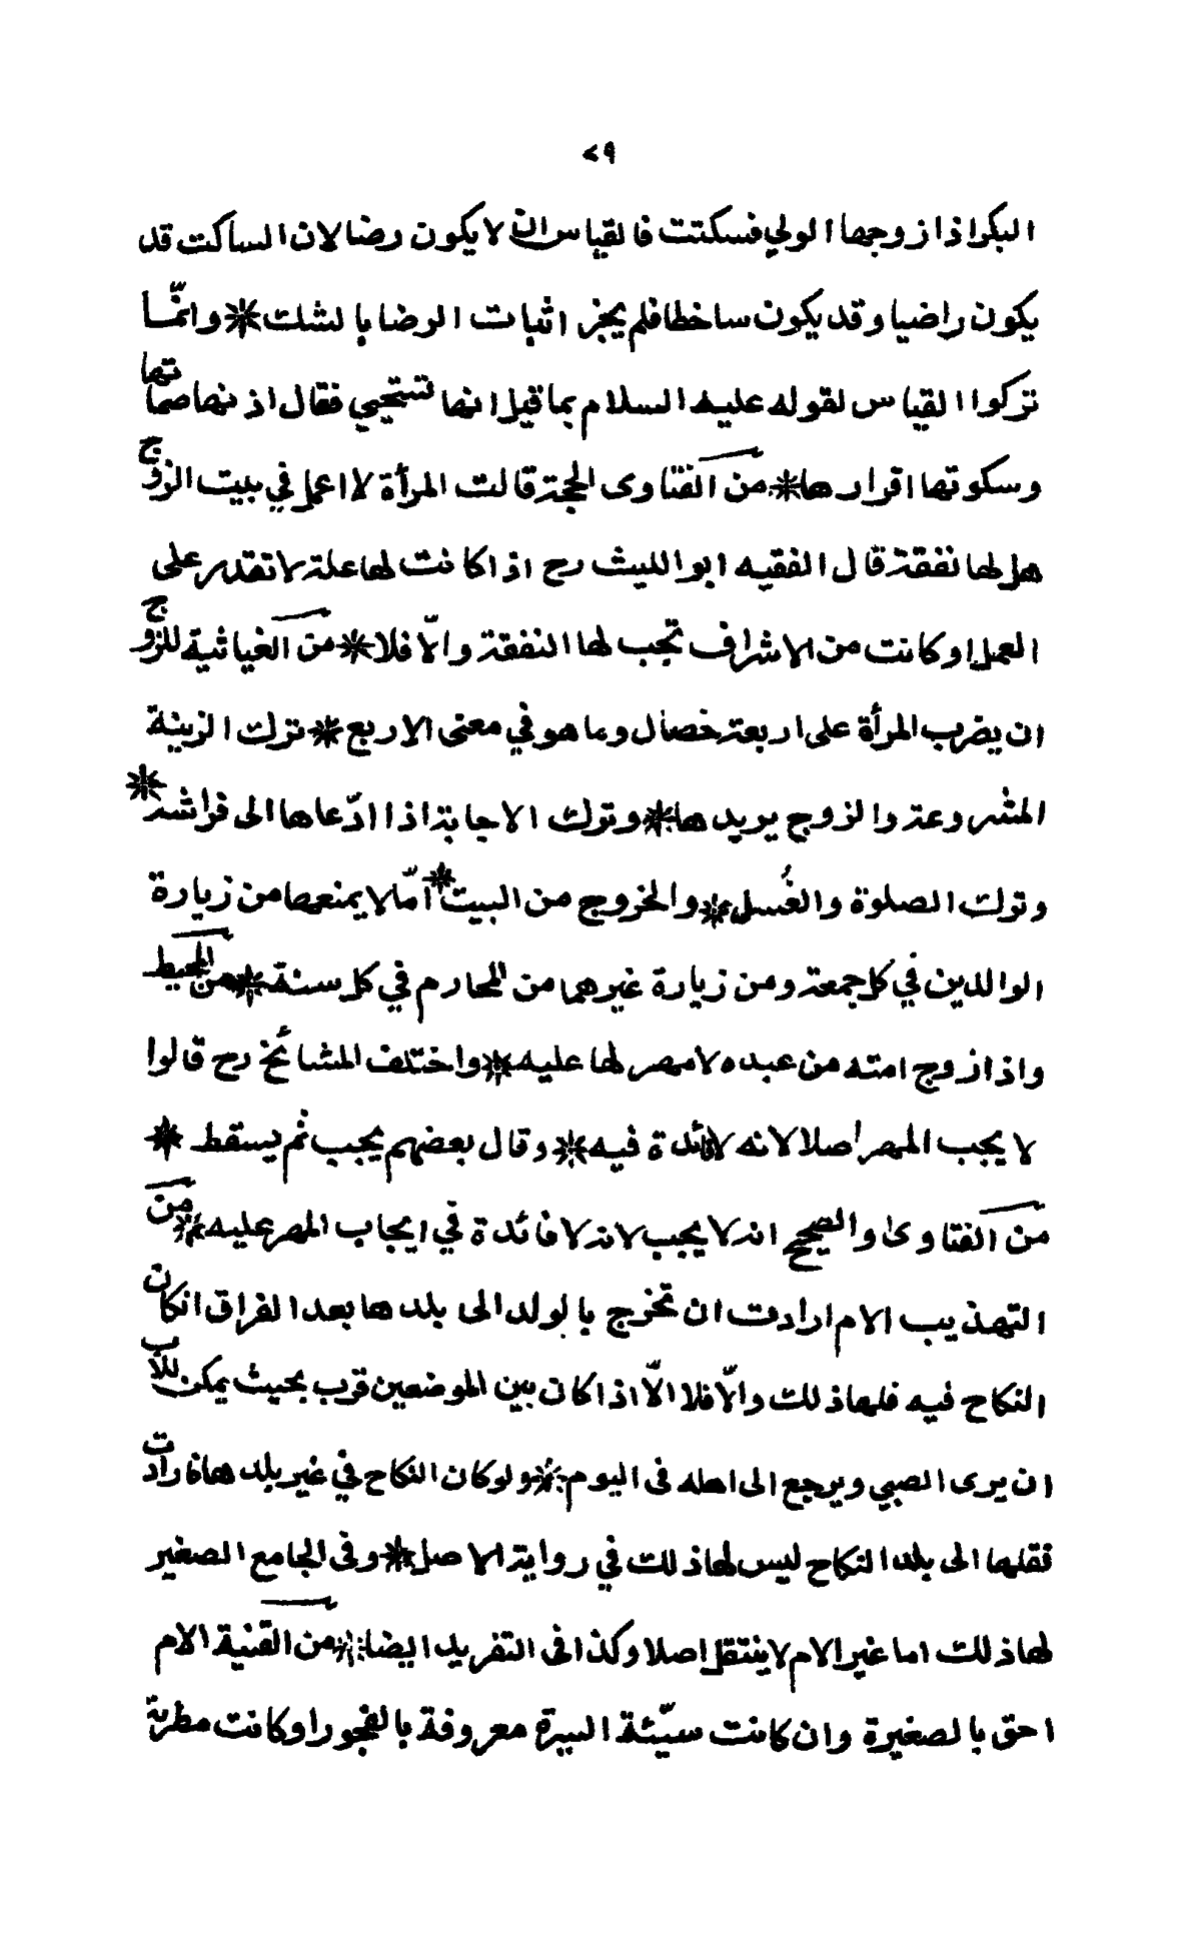 ٧٩
البكر اذا زوجها الولي فسكتت فالقياس ان لا يكون رضا لان الساكت قد
يكون راضيا وقد يكون ساخطا فلم يجز اثبات الرضا بالشك * وانّما
تركوا القياس لقوله عليه السلام بما قيل انها تستحيي فقال اذنها صماتها
وسكوتها اقرارها * من الفتاوى الحجة قالت المرأة لا اعمل في بيت الزوج
هل لها نفقة قال الفقيه ابو الليث رح اذا كانت لها علة لا تقدر على
العمل او كانت من الاشراف تجب لها النفقة والّا فلا * من الغياثية للزوج
ان يضرب المرأة على اربعة خصال وما هو في معنى الاربع * ترك الزينة
المشروعة والزوج يريدها * وترك الاجابة اذا ادّعاها الى فراشه *
وترك الصلوة والغُسل * والخروج من البيت * امّا لا يمنعها من زيارة
الوالدين في كل جمعة ومن زيارة غيرهما من المحارم في كل سنة * من المحيط
واذا زوج امته من عبده لا مهر لها عليه * واختلف المشائخ رح قالوا
لا يجب المهر اصلا لانه لا فائدة فيه * وقال بعضهم يجب ثم يسقط *
من الفتاوى والصحيح انه لا يجب لانه لا فائدة في ايجاب المهر عليه * من
التهذيب الام ارادت ان تخرج بالولد الى بلدها بعد الفراق ان كان
النكاح فيه فلها ذلك والّا فلا الّا اذا كان بين الموضعين قرب بحيث يمكن للاب
ان يرى الصبي ويرجع الى اهله فى اليوم * ولو كان النكاح في غير بلدها فارادت
نقلها الى بلد النكاح ليس لها ذلك في رواية الاصل * وفى الجامع الصغير
لها ذلك اما غير الام لا ينتقل اصلا وكذا فى التفريد ايضا * من القنية الام
احق بالصغيرة وان كانت سيّئة السيرة معروفة بالفجور او كانت مطربة